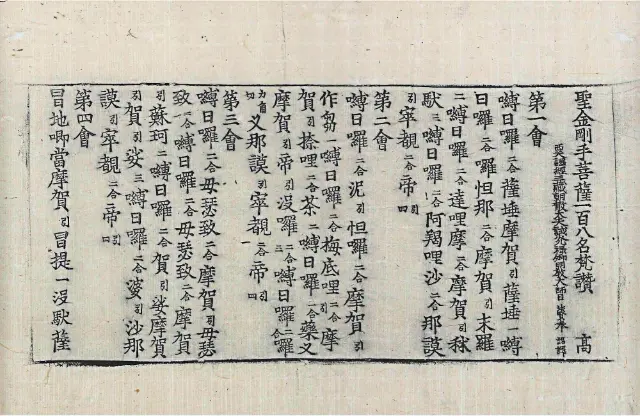 聖金剛手菩薩一百八名梵讚 高
西天譯經三藏朝散大夫試光祿卿明教大師 法賢奉 詔譯
第一會
嚩日囉二合薩埵摩賀引薩埵一嚩
日囉二合怛那二合摩賀引末羅
二嚩日囉二合達哩摩二合摩賀引秫
馱三嚩日囉二合阿羯哩沙二合那謨
引窣覩二合帝引四
第二會
嚩日囉二合泥引怛囉二合摩賀引
作芻一嚩日囉二合梅底哩二合摩
賀引捺哩二合茶二嚩日囉二合藥叉
摩賀引帝引沒囉二合三嚩日囉二合囉
叉那謨引窣覩二合帝引四
第三會
嚩日囉二合毋瑟致二合摩賀引毋瑟
致二合一嚩日囉二合毋瑟致二合摩賀
引蘇珂二嚩日囉二合賀引娑摩賀
引賀引娑三嚩日囉二合婆引沙那
謨引窣覩二合帝引四
第四會
冒地唧當摩賀引冒提一沒馱薩